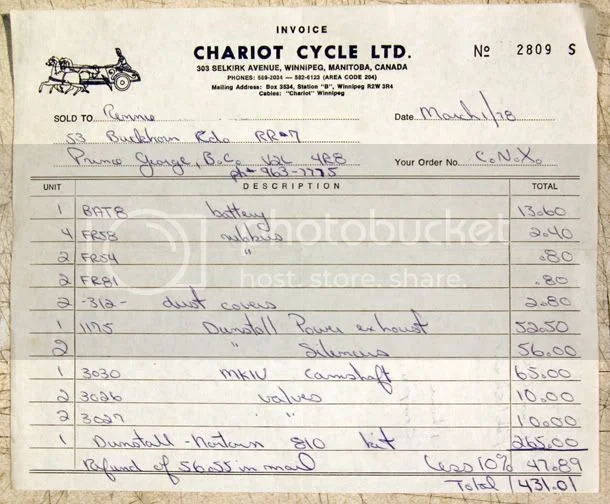 INVOICE
CHARIOT CYCLE LTD.
Nº 2809 S
303 SELKIRK AVENUE, WINNIPEG, MANITOBA, CANADA
PHONES: 589-2034 — 582-6123 (AREA CODE 204)
Mailing Address: Box 3534, Station "B", Winnipeg R2W 3R4
Cables: "Chariot" Winnipeg
SOLD TO Rennie
Date March 1/78
53 Buckhorn Rd. RR#7
Prince George, B.C. V2L 4R8
Your Order No. C.N.X.
ph- 963-7775
UNIT DESCRIPTION TOTAL
1 BAT8 battery 13.60
4 FR58 rubbers 2.40
2 FR54 " .80
2 FR81 .80
2 -312- dust covers 2.80
1 1175 Dunstall Power exhaust 52.50
2 " Silencers 56.00
1 3030 MKIV Camshaft 65.00
2 3026 valves 10.00
2 3027 " 10.00
1 Dunstall - Norton 810 kit 265.00
Refund of 56.55 in mail Less 10% 47.89
Total 431.01
photobucket
host. store. share.